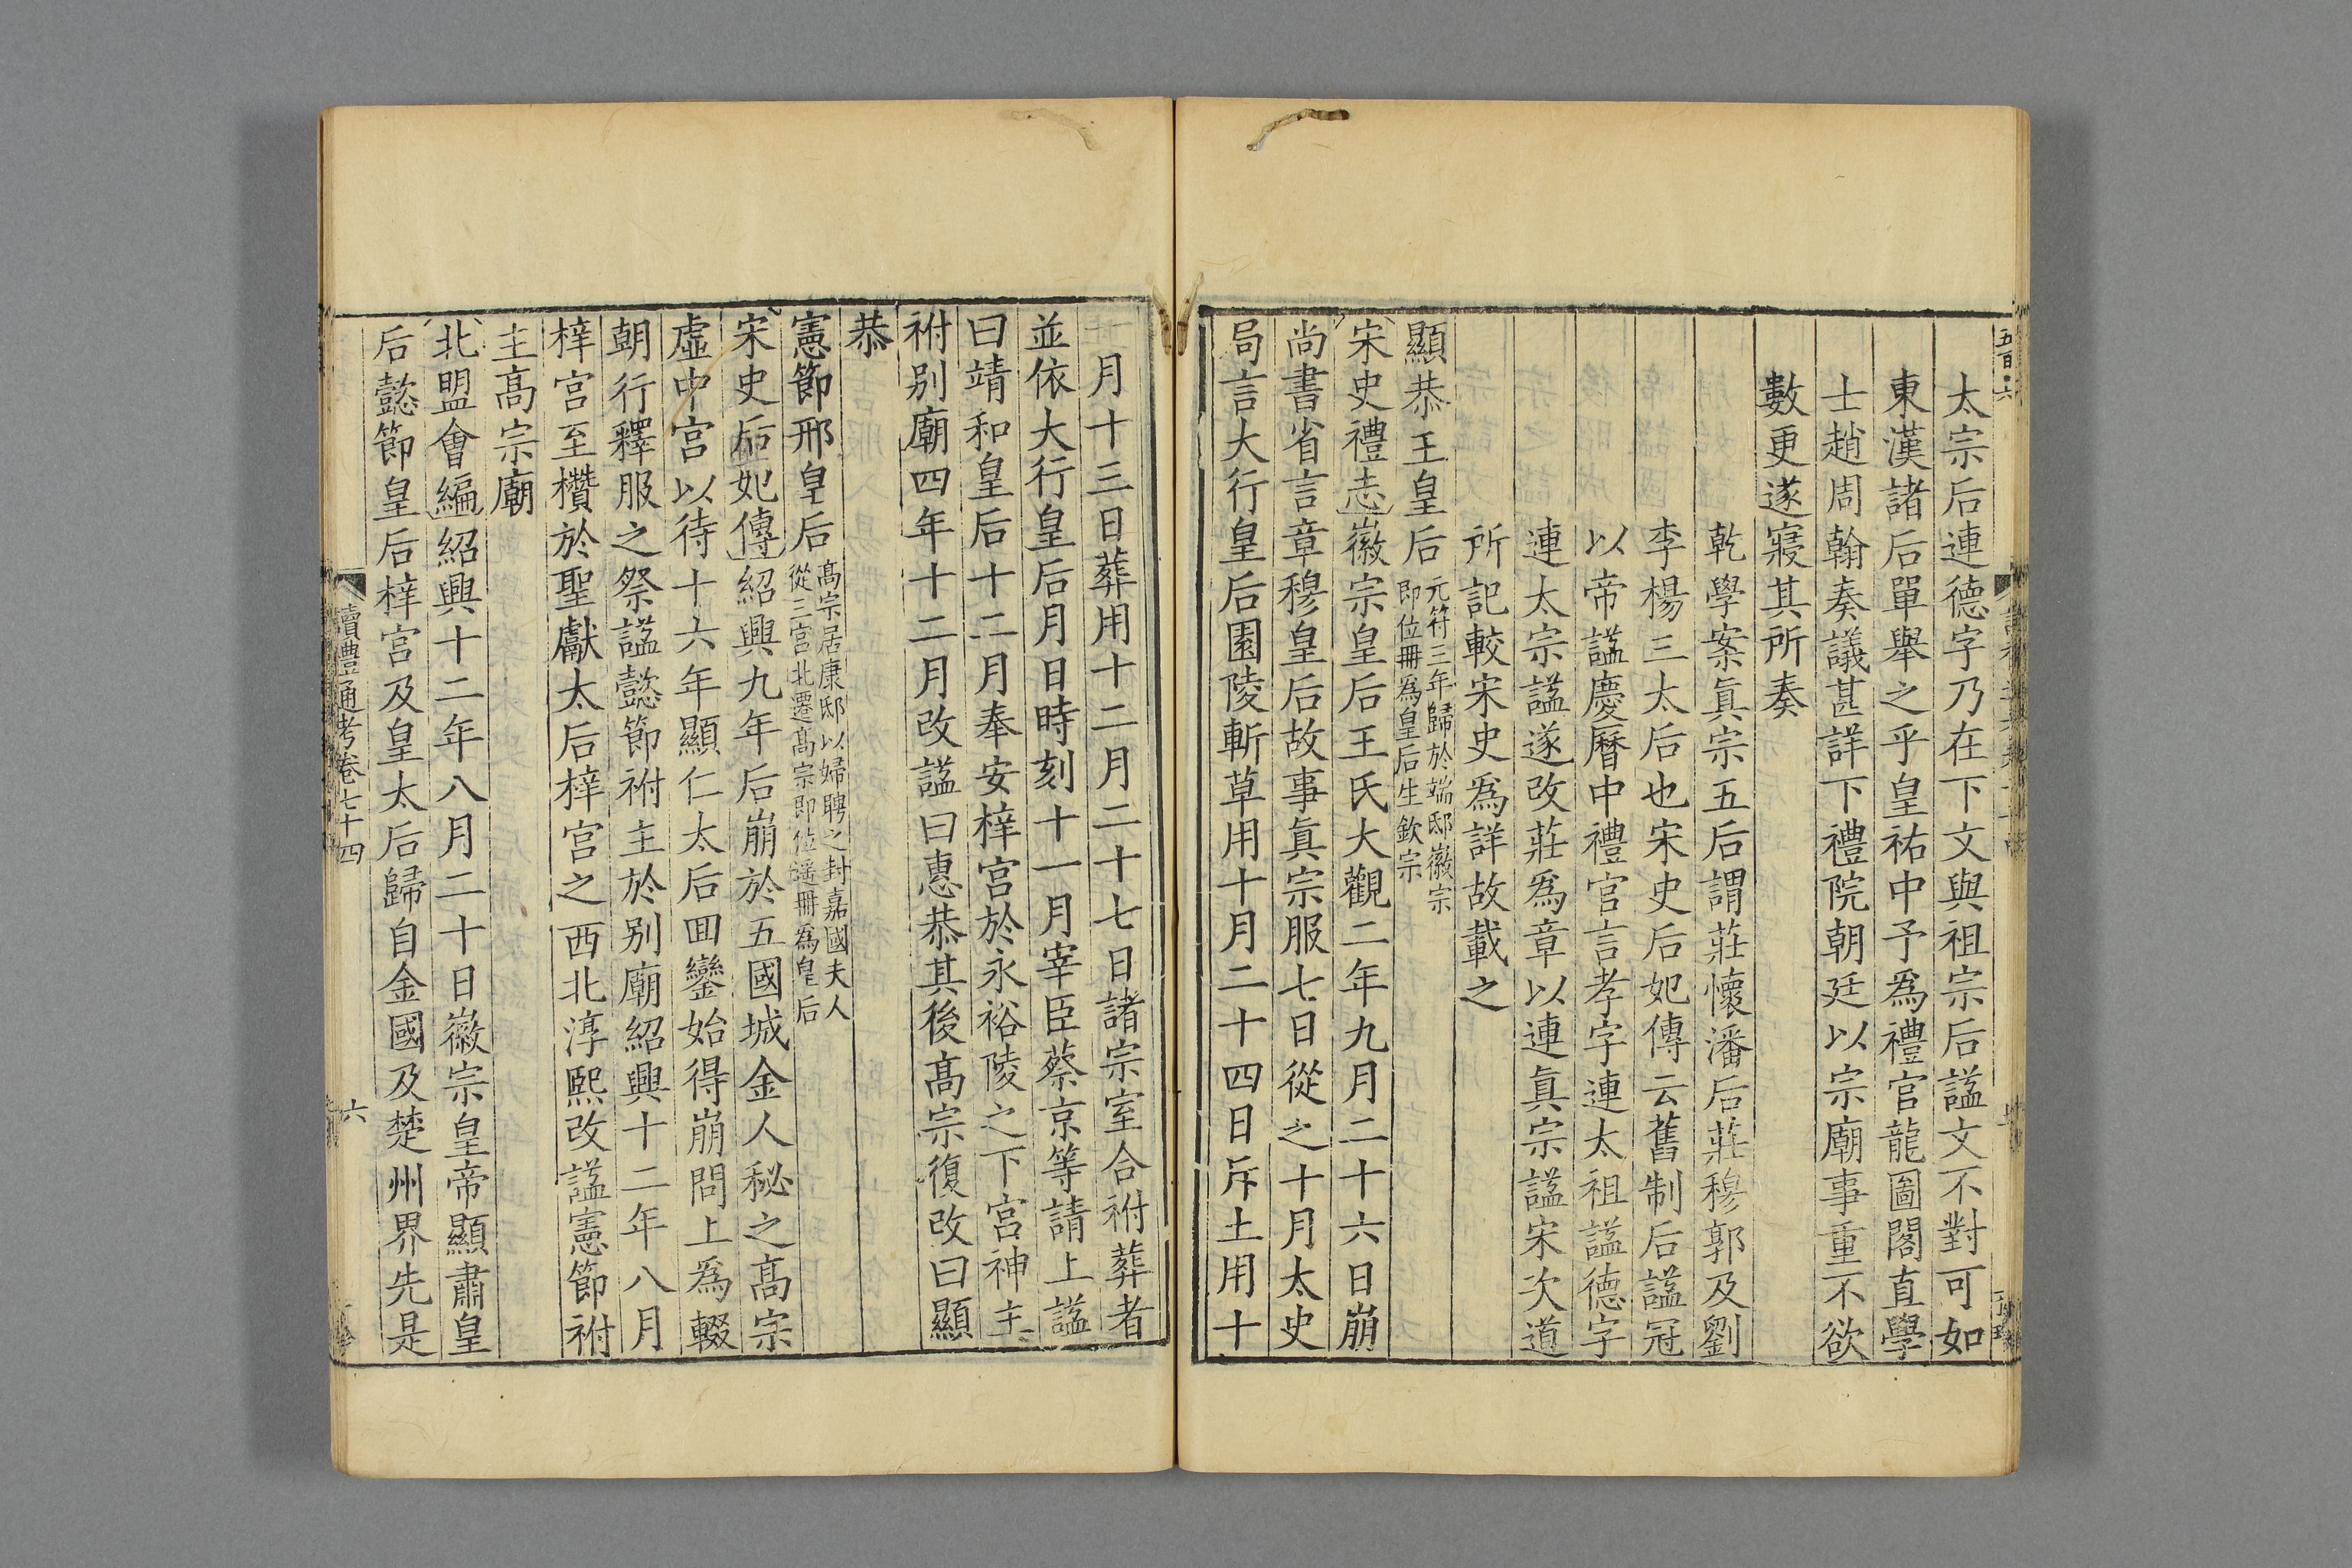 五百六
太宗后連德字乃在下文與祖宗后諡文不對可如
東漢諸后單舉之乎皇祐中予爲禮官龍圖閣直學
士趙周翰奏議甚詳下禮院朝廷以宗廟事重不欲
數更遂寢其所奏
乾學案眞宗五后謂莊懷潘后莊穆郭及劉
李楊三太后也宋史后妃傳云舊制后諡冠
以帝諡慶曆中禮官言孝字連太祖諡德字
連太宗諡遂改莊爲章以連眞宗諡宋次道
所記較宋史爲詳故載之
顯恭王皇后元符三年歸於端邸徽宗
即位冊爲皇后生欽宗
宋史禮志徽宗皇后王氏大觀二年九月二十六日崩
尚書省言章穆皇后故事眞宗服七日從之十月太史
局言大行皇后園陵斬草用十月二十四日斥土用十
一月十三日葬用十二月二十七日諸宗室合祔葬者
並依大行皇后月日時刻十一月宰臣蔡京等請上諡
曰靖和皇后十二月奉安梓宮於永裕陵之下宮神主
祔别廟四年十二月改諡曰惠恭其後髙宗復改曰顯
恭
憲節邢皇后髙宗居康邸以婦聘之封嘉國夫人
從三宮北遷髙宗即位遥冊爲皇后
宋史后妃傳紹興九年后崩於五國城金人秘之髙宗
虛中宮以待十六年顯仁太后囬鑾始得崩問上爲輟
朝行釋服之祭諡懿節祔主於别廟紹興十二年八月
梓宮至欑於聖獻太后梓宮之西北淳熙改諡憲節祔
主髙宗廟
北盟會編紹興十二年八月二十日徽宗皇帝顯肅皇
后懿節皇后梓宮及皇太后歸自金國及楚州界先是
讀禮通考卷七十四
六